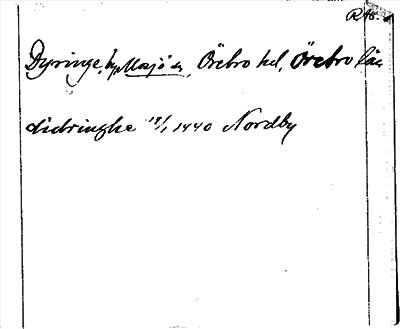 RAO.
Dyringe, by, Mosjö sn, Örebro hd, Örebro län
didringhe 19/1 1440 Nordby